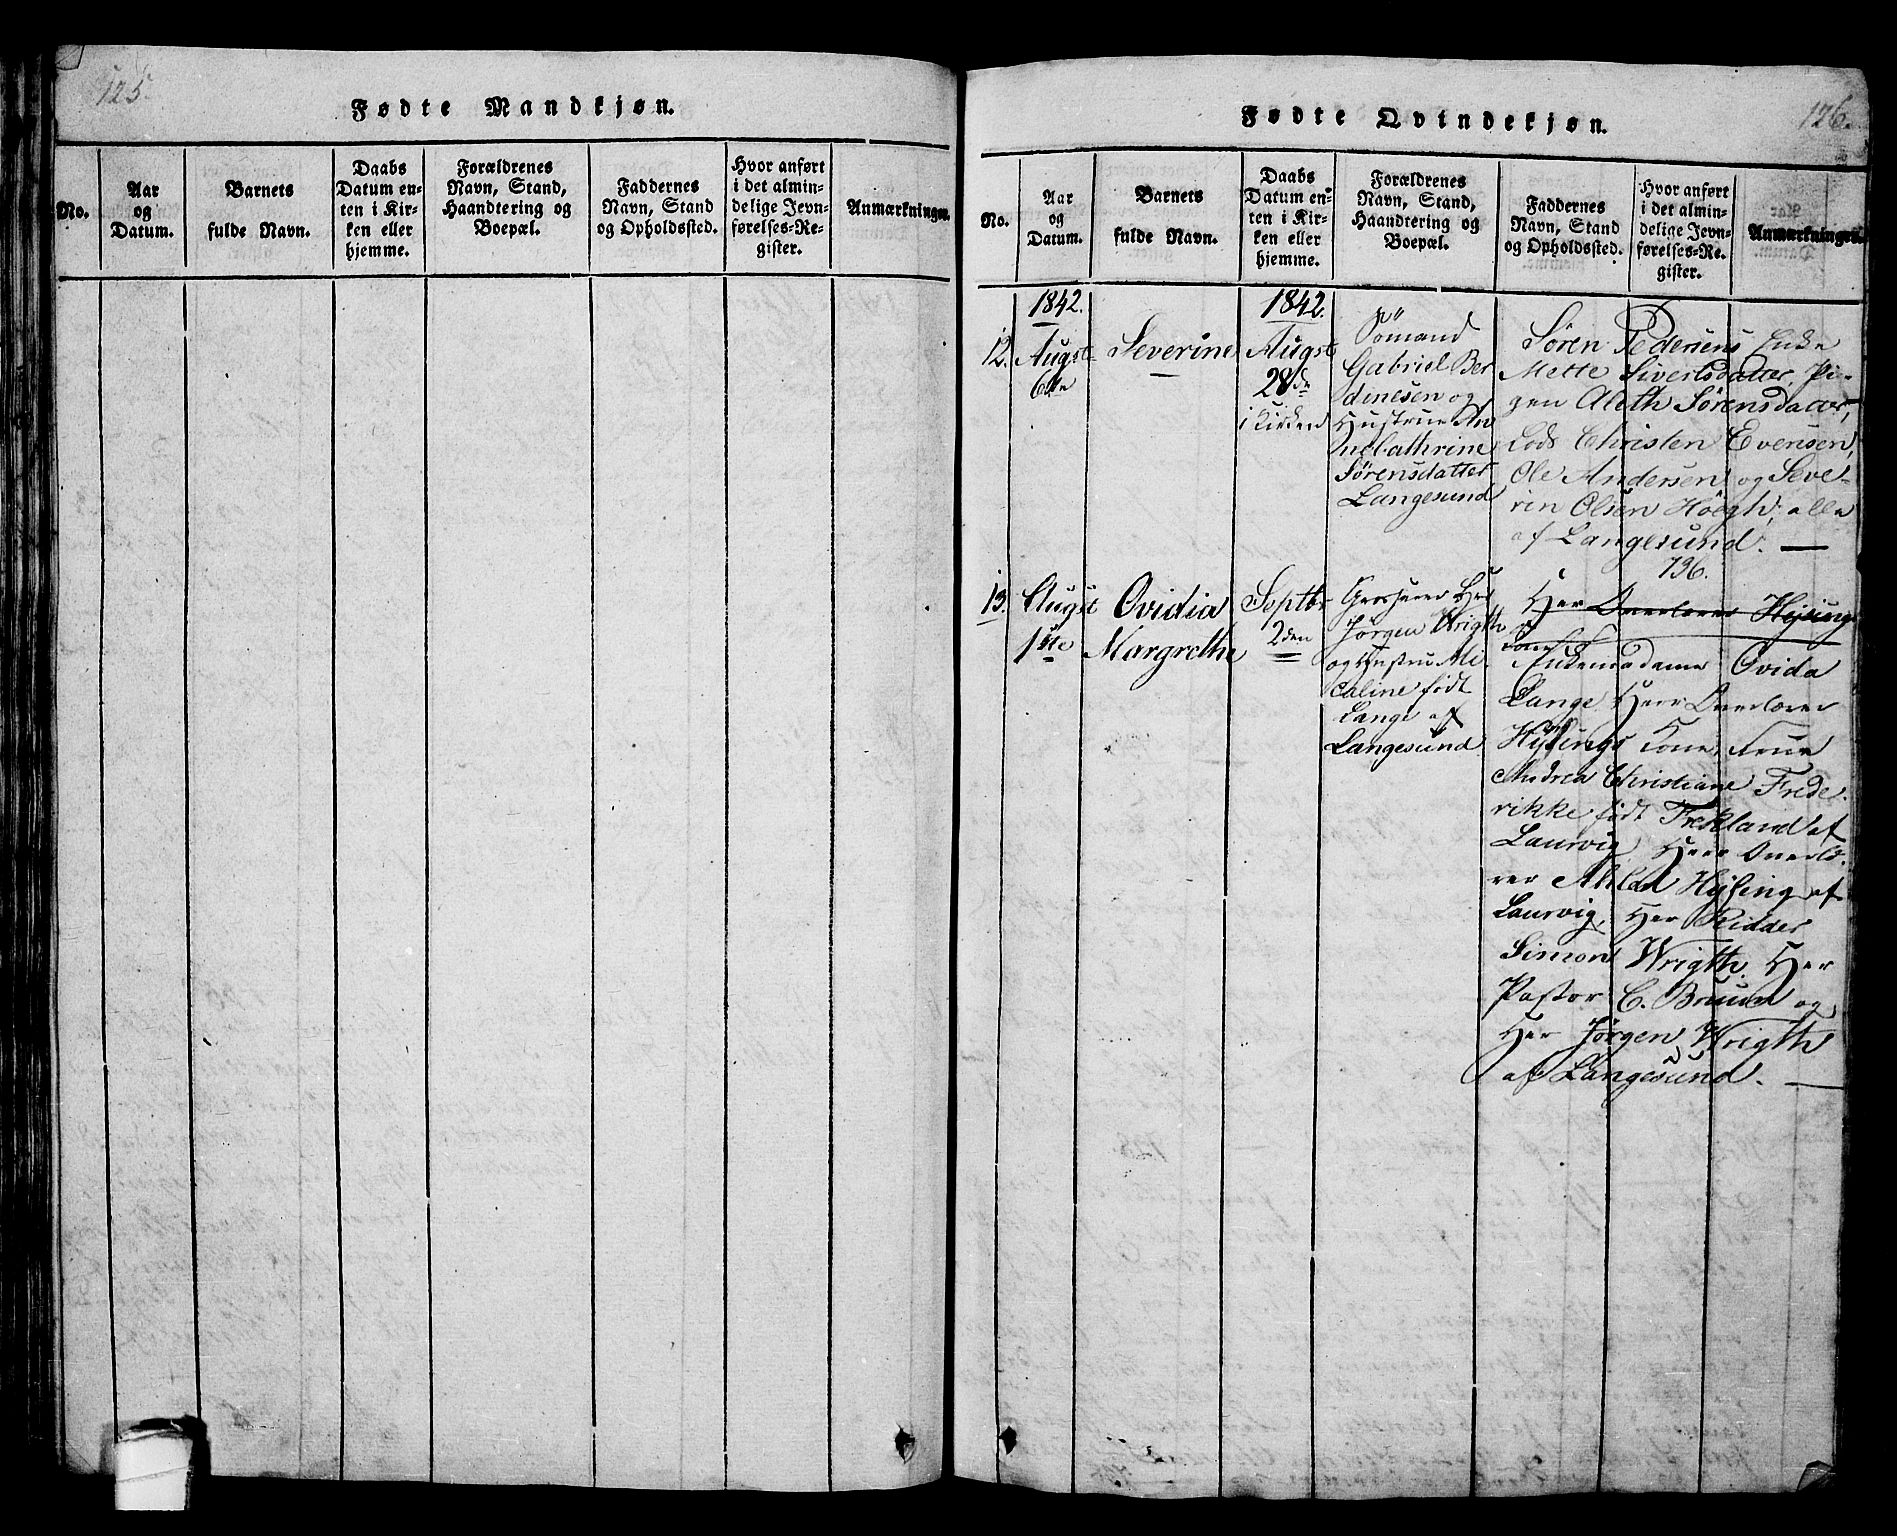 125.
Fødte Mandkjøn.
No.
Aar
og
Datum.
Barnets
fulde Navn.
Daabs
Datum en-
ten i Kir-
ken eller
hjemme.
Forældrenes
Navn, Stand,
Haandtering og
Boepæl.
Faddernes
Navn, Stand
og Opholdssted.
Hvor anført
i det almin-
delige Jevn-
førelses-Re-
gister.
Anmærkninger.
126.
Fødte Qvindekjøn.
No.
Aar
og
Datum.
Barnets
fulde Navn.
Daabs
Datum en-
ten i Kir-
ken eller
hjemme.
Forældrenes
Navn, Stand,
Haandtering og
Boepæl.
Faddernes
Navn, Stand
og Opholdssted.
Hvor anført
i det almin-
delige Jevn-
førelses-Re-
gister.
Anmærkninger.
12.
1842.
Augst
6te
Severine
1842.
Augst
28de
i Kirken
Sömand
Gabriel Ber
dinesen og
Hustrue An
ne Cathrine
Sørensdatter
Langesund
Søren Pedersens Enke
Mette Sivertsdatter, Pi-
gen Aleth Sørensdatter,
Lods Christen Evensen,
Ole Andersen og Seve-
rin Olsen Höegh, alle
af Langesund. —
736.
13.
Augst
1ste
Ovidia
Margrethe
Septbr
2den
Grosserer Her
Jørgen Wrigth
og Hustru Mi
caline født
Lange af
Langesund
Her Overlærer Hysing
Kone
Enkemadame Ovida
Lange Herr Overlærer
Hysings Kone, Frue
Andrea Christiane Frede-
rikke født Treskland af
Laurvig, Herr Overlæ-
rer Hysing af
Laurvig, Her Ridder
Simon Wrigth. Her
Pastor C. Bruun og
Her Jørgen Wrigth
af Langesund. —